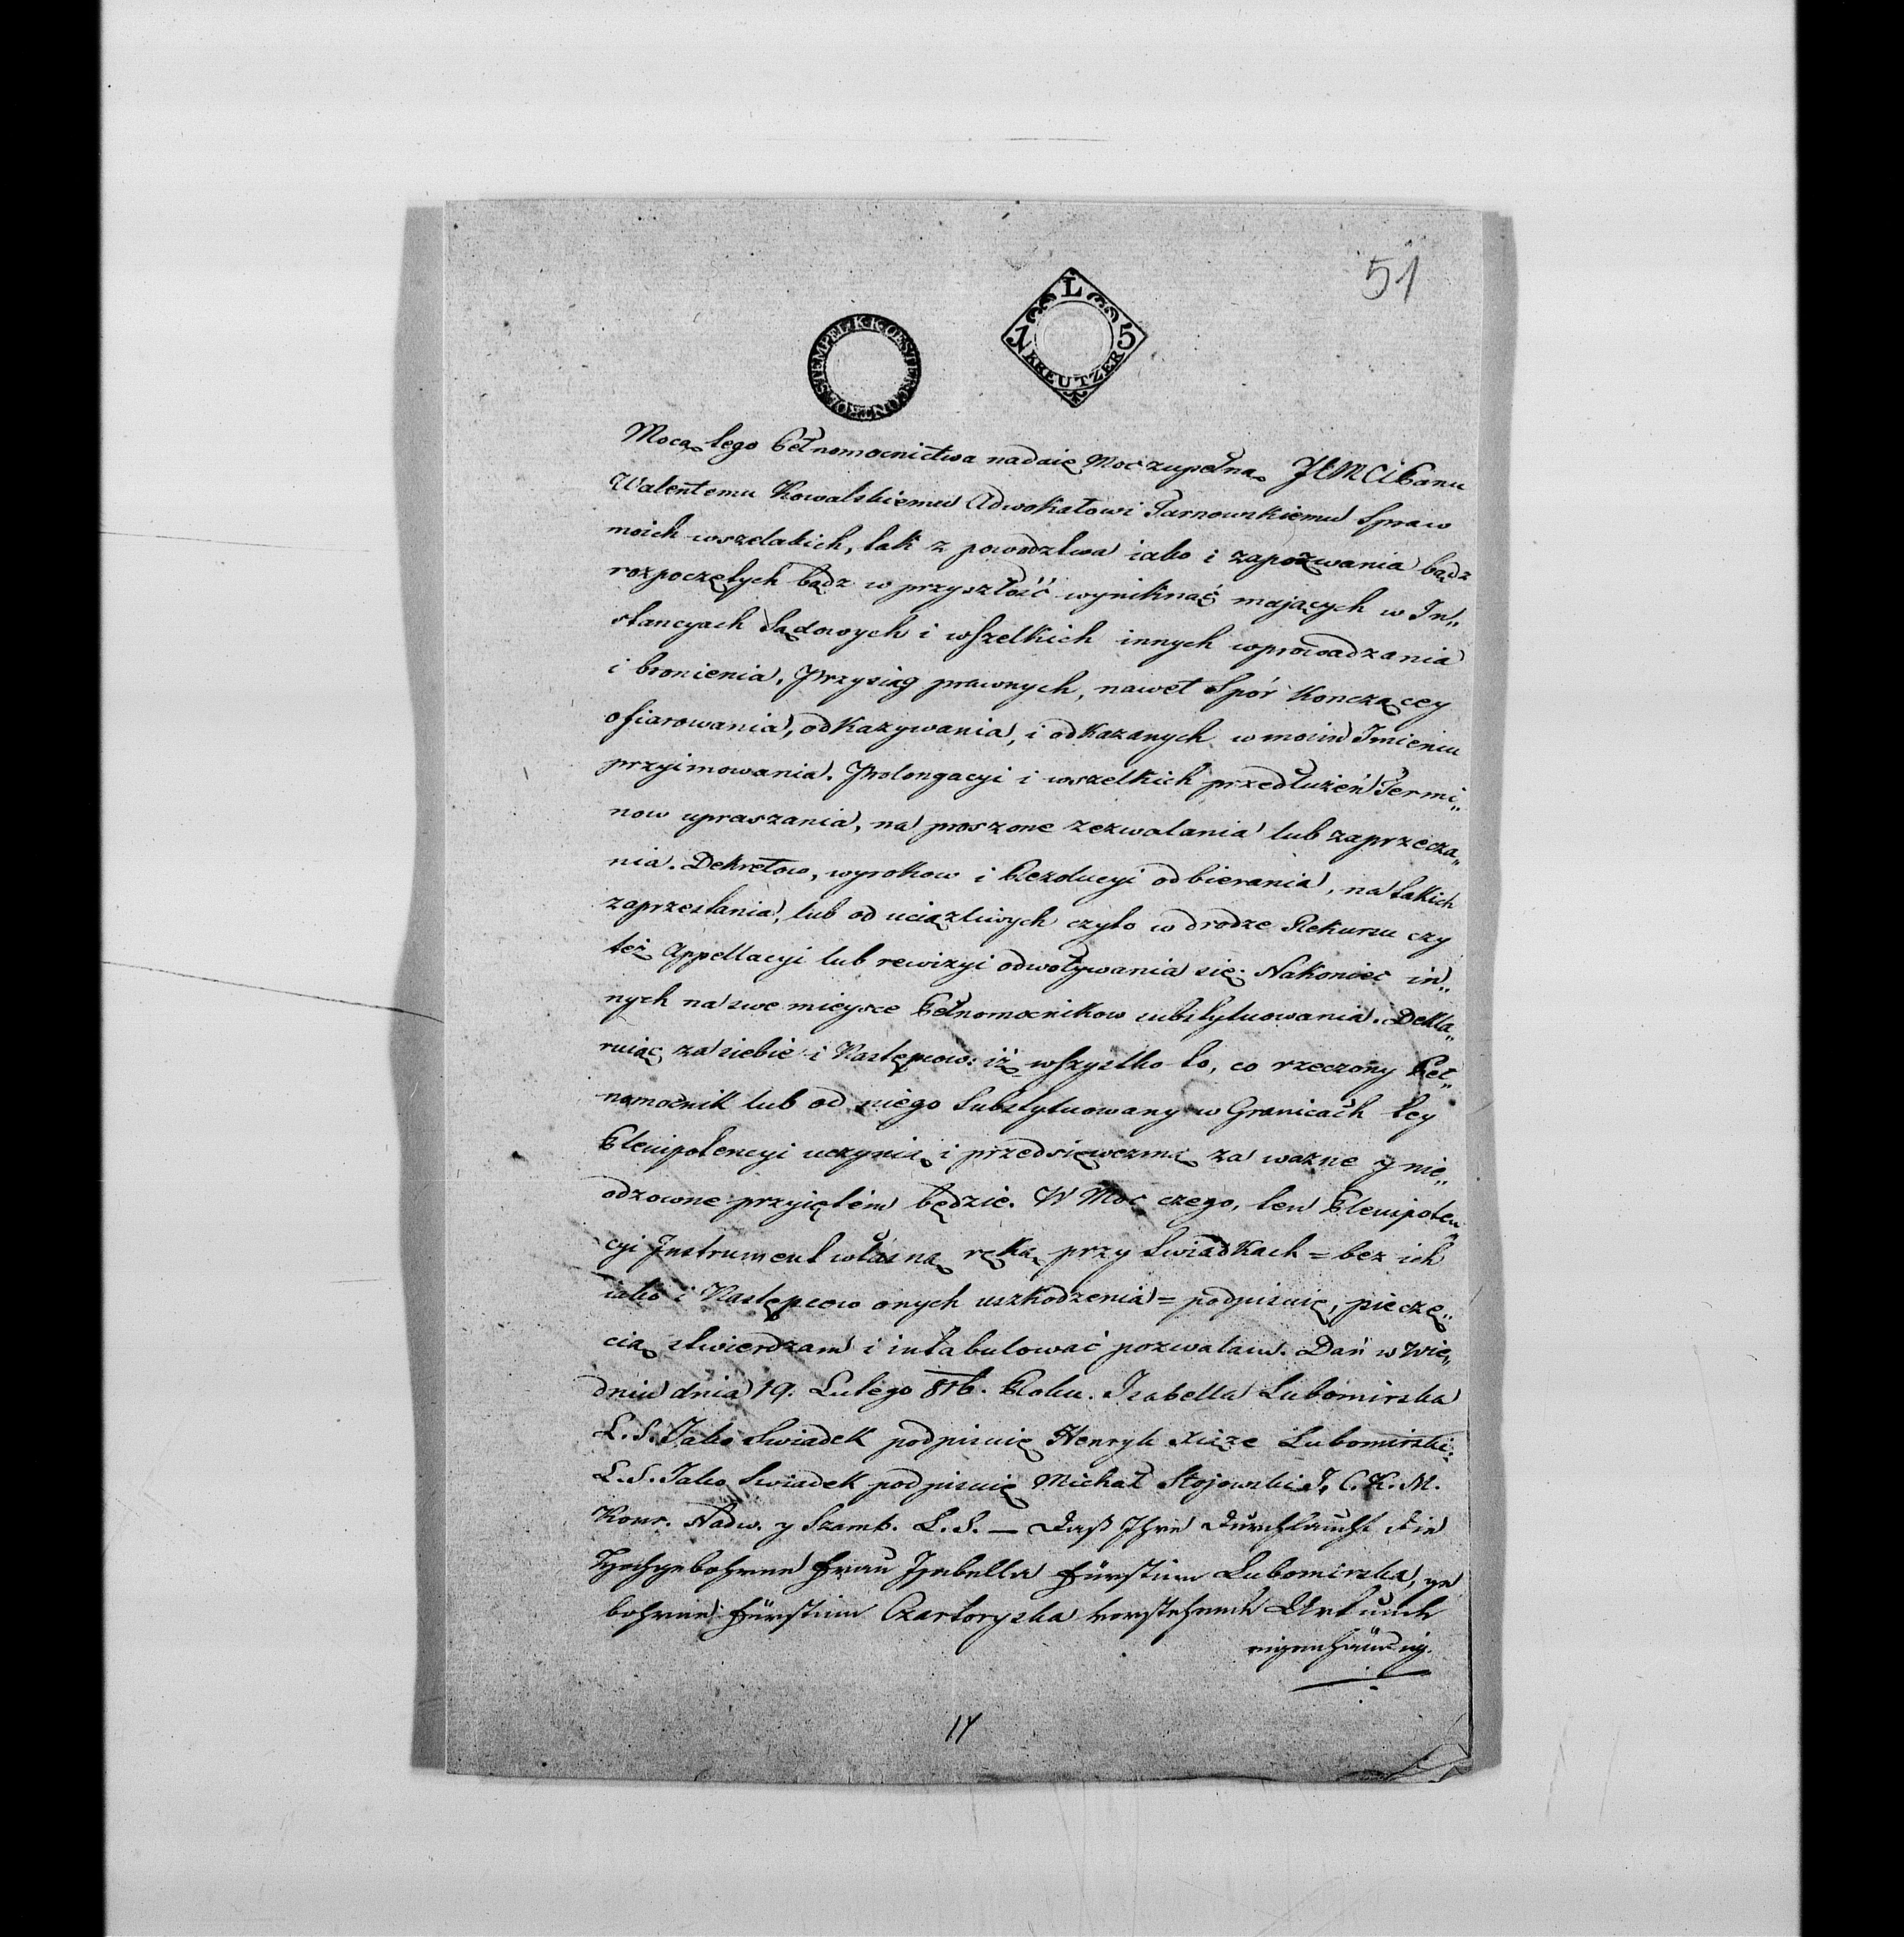 51
L
15 KREUTZER
K K OESTER CONTROL STEMPEL
Mocą tego Pełnomocnictwa nadaię Moc zupełną JEMCi Panu
Walentemu Kowalskiemu Adwokatowi Tarnowskiemu Spraw
moich wszelakich, tak z powodztwa iako i zapozwania bądz
rozpoczętych bądz w przyszłość wyniknąć mających w In„
stancyach Sądowych i wszelkich innych wprowadzania
i bronienia, Przysiąg prawnych, nawet Spór Konczącey
ofiarowania, odkazywania, i odkazanych w moim Imieniu
przyimowania. Prolongacyi i wszelkich przedłużeń Termi„
now upraszania, na proszone zezwalania lub zaprzecza„
nia. Dekretow, wyrokow i Rezolucyi odbierania, na takich
zaprzestania, lub od uciążliwych czyto w drodze Rekursu czy
też Appellacyi lub rewizyi odwoływania się. Nakoniec in„
nych na swe mieysce Pełnomocnikow substytuowania. Dekla„
ruiąc za siebie i Następcow: iż wszystko to, co rzeczony Peł„
nomocnik lub od niego Substytuowany w Granicach tey
Plenipotencyi uczynią i przedsięwezmą za wazne y nie„
odzowne przyiętém będzie. W Moc czego, ten Plenipoten„
cyi Instrument własną ręką przy Swiadkach = bez ich
iako i Następcow onych uszkodzenia = podpisuię, pieczę„
cią stwierdzam i intabulować pozwalam. Dań w Wie„
dniu dnia 19. Lutego 816. Roku. Izabella Lubomirska
L. S. Jako Swiadek podpisuię Henryk Xiąze Lubomirski.
L. S. Jako Swiadek podpisuię Michał Stojowski J. C. K. M.
Kom. Nadw. y Szamb. L. S. — Daß Ihre Durchlaucht die
Hochgebohrne Frau Isabella Fürstinn Lubomirska, ge
bohrne Fürstinn Czartoryska vorstehende Urkunde
eigenhändig.
14